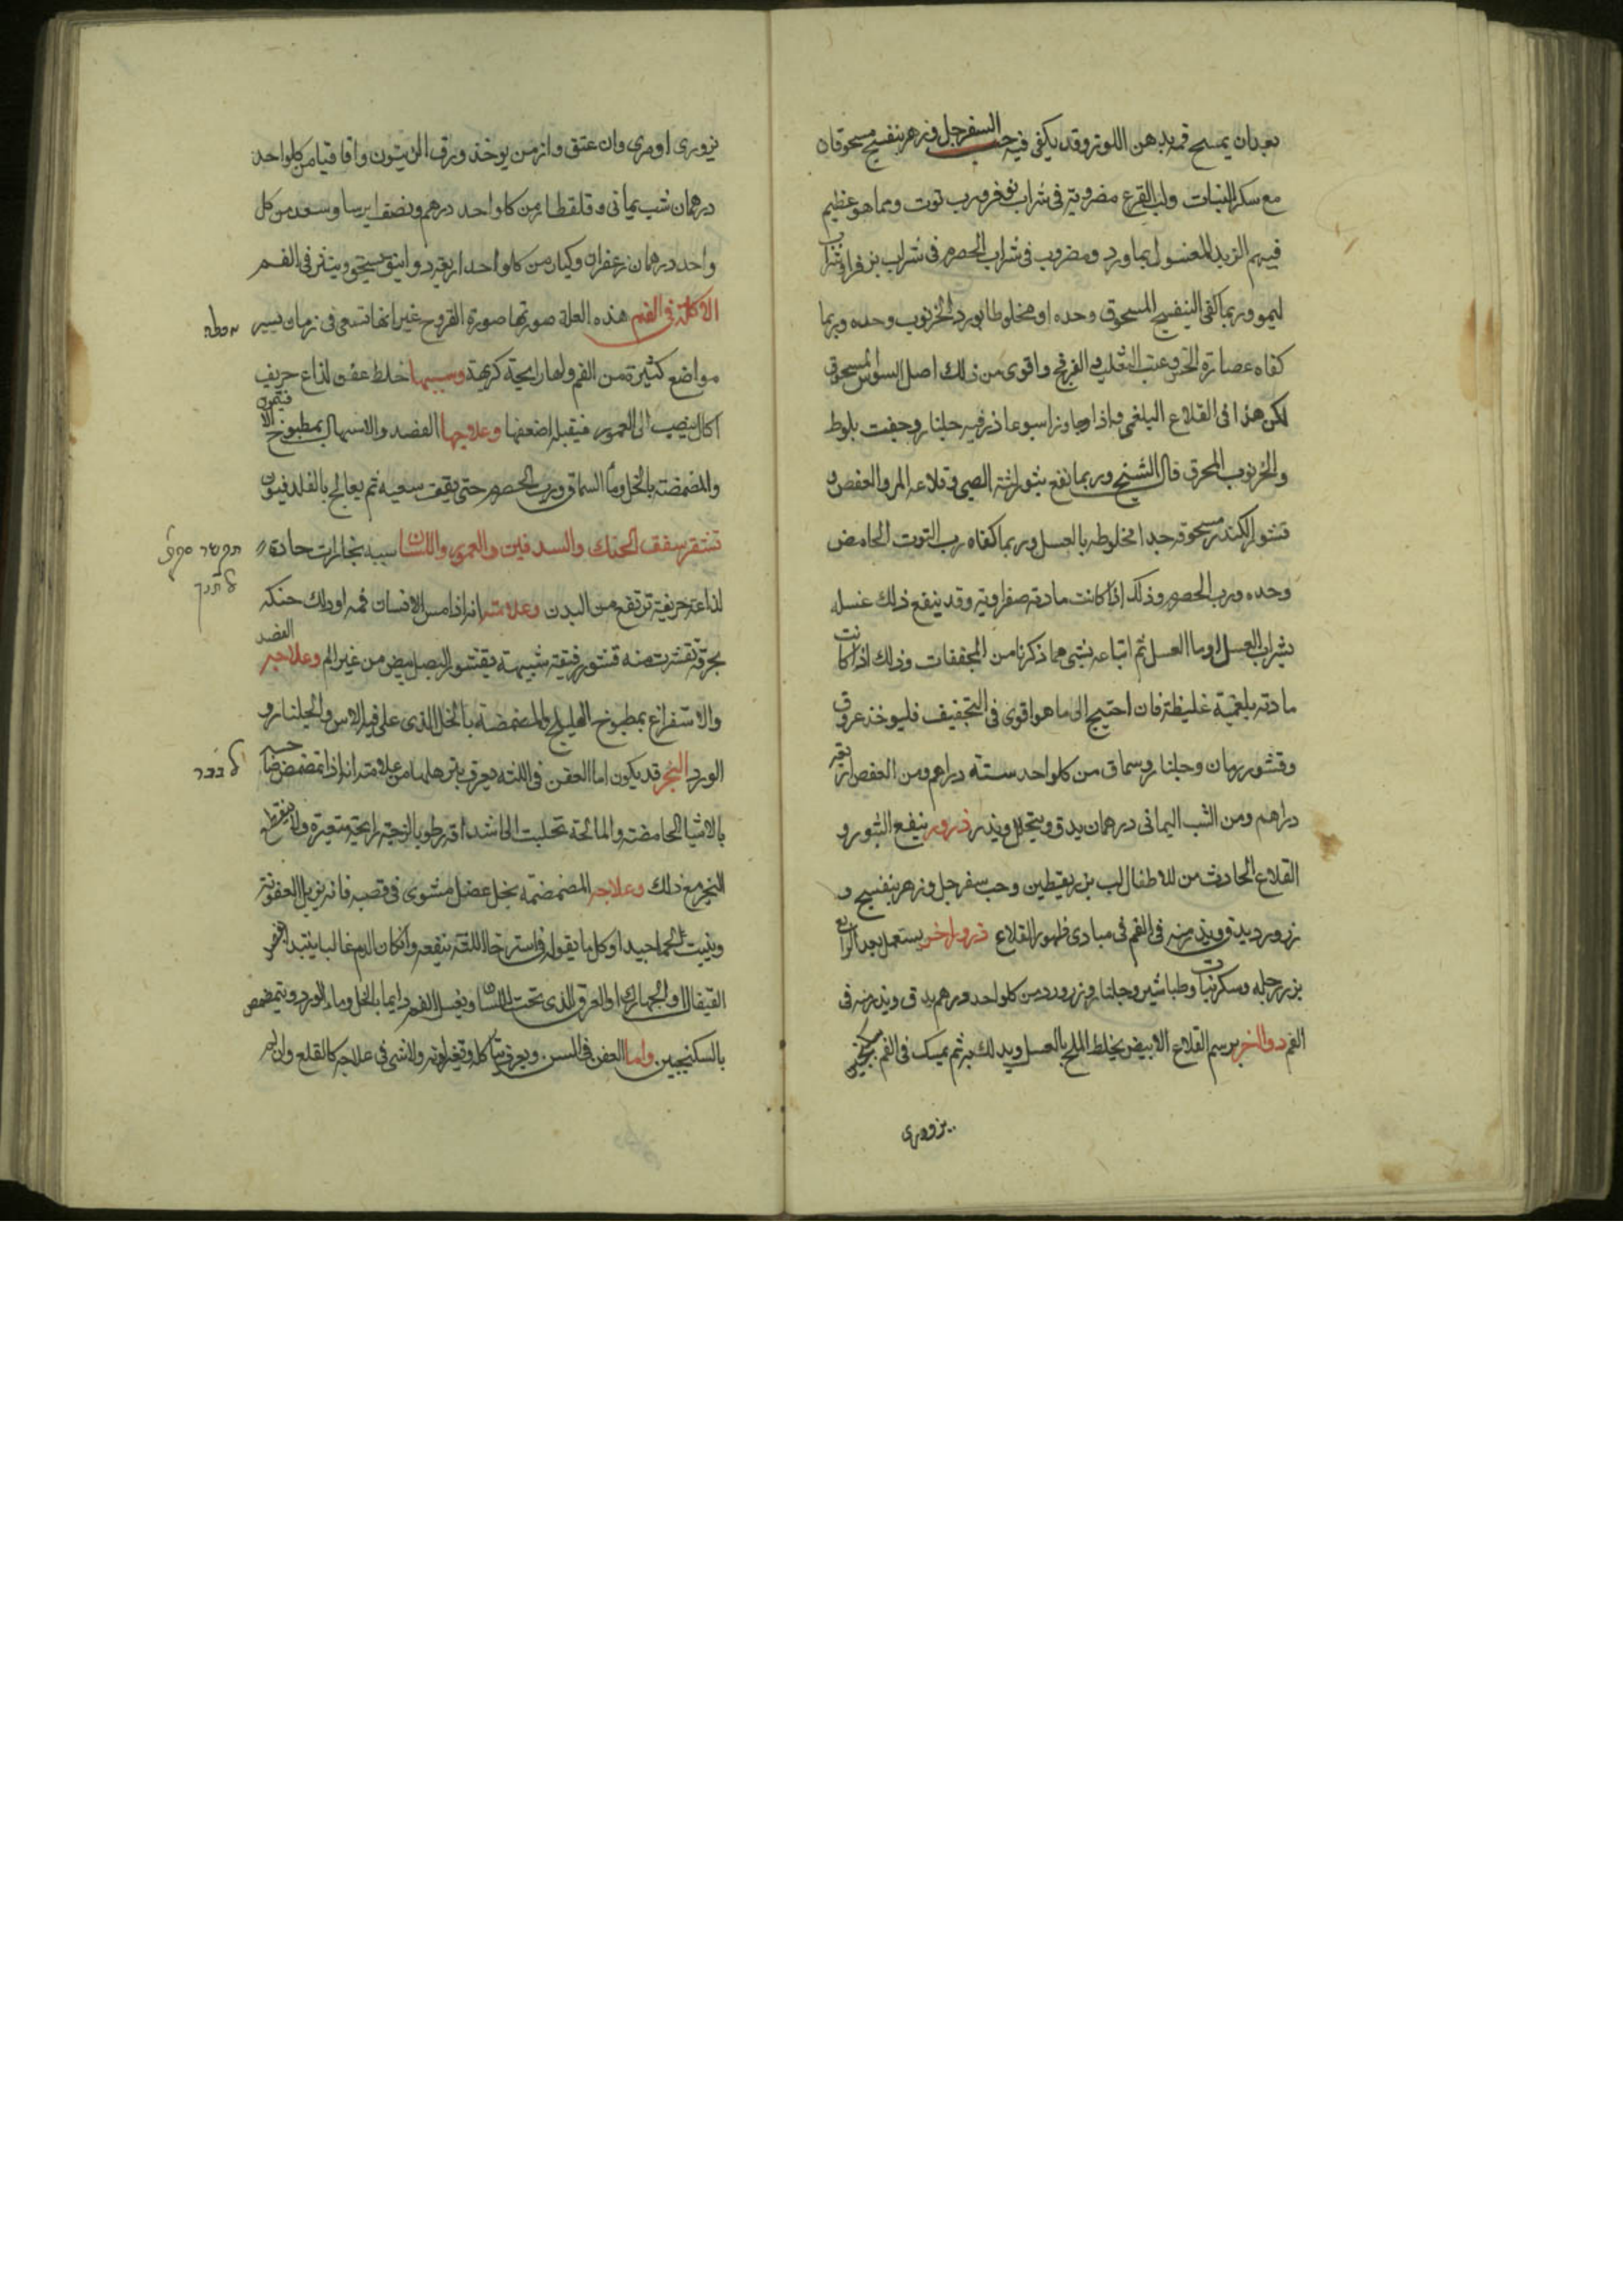 بعد ان يمسح فمه بدهن اللوز وقد يكفى فيه حب السفرجل وزهر بنفسج مسحوقان
مع سكر النبات ولب القرع مضروبة فى شراب نوفر ورب توت ومما هو عظيم
فيهم الزبد المغسول بماورد ومضروب فى شراب الحصرم فى شراب بزفرا فى شراب
ليمو وربما كفى البنفسج المسحوق وحده او مخلوطا بورد الخرنوب وحده وربما
كفاه عصارة الخس وعنب الثعلب والفرفخ واقوى من ذلك اصل السوس المسحوق
لكن هذا فى القلاع البلغمى فاذا جاوز اسبوعا ذر فيه جلنار وجفت بلوط
والخرنوب المحرق قال الشيخ وربما نفع بثور لثة الصبى وقلاعه المر والعفص و
قشور الكندر مسحوقه جدا مخلوطه بالعسل وربما كفاه رب التوت الحامض
وحده ورب الحصرم وذلك اذا كانت مادته صفراوية وقد ينفع ذلك غسله
بشراب العسل او ما العسل ثم اتباعه بشى مما ذكرنا من المجففات وذلك اذا كانت
مادته بلغمية غليظة فان احتيج الى ما هو اقوى فى التجفيف فليوخذ عروق
وقشور رمان وجلنار وسماق من كلواحد ستة دراهم ومن العفص اربعة
دراهم ومن الشب اليمانى درهمان يدق وينخل ويذر ذرور ينفع البثور و
القلاع الحادث من للاطفال لب بزر يقطين وحب سفرجل وزهر بنفسج و
زرورد يدق ويذر منه فى الفم فى مبادى ظهور القلاع ذرور اخر يستعمل بعد الرابع
بزر رجله وسكر نبات وطباشير وجلنار وزرورد من كلواحد درهم يدق ويذر منه فى
الفم دوا اخر برسم القلاع الابيض يخلط الملح بالعسل ويدلك به ثم يمسك فى الفم سكنجبين
بزورى
بزورى او مرى وان عتق وازمن يوخذ ورق الزيتون واقاقيا من كلواحد
درهمان شب يمانى وقلقطار من كلواحد درهم ونصف ايرسا وسعد من كل
واحد درهمان زعفران وكبابه من كلواحد اربعة دوانيق يسحق وينثر فى الفم
الاكلة فى الفم هذه العلة صورتها صورة القروح غير انها تسعى فى زمان يسير
مواضع كثيرة من الفم ولها رايحة كريهة وسببها خلط عفن لذاع حريف
اكال ينصب الى العمور فيقبله لضعفها وعلاجها الفصد والاسهال بمطبوخ الافتيمون
والمضمضة بالخل وما السماق ورب الحصرم حتى يقف سعيه ثم يعالج بالفلدفيون
تنتقر سقف الحنك والسدفين والعمور واللسان سببه بخارات حادة
תקשר סקף
לחנך
لذاعة حريفة ترتفع من البدن وعلامته انه اذا مس الانسان فمه او دلك حنكه
بخرقة تقشرت منه قشور رقيقة شبيهة بقشور البصل ببيض من غير الم وعلاجه الفصد
والاستفراغ بمطبوخ الهليلج والمضمضة بالخل الذى على فيه الاس والجلنار و
الورد البخر قد يكون اما العفن فى اللثه ويعرف بترهلها من علامته انه اذا تمضمض صاحبه
אלבכר
بالاشيا الحامضة والمالحة تحلبت الى اشداقه رطوبة لزجة رايحة متغيرة ولا ينقطع
البخر مع ذلك وعلاجه المضمضة بخل عنصل مشوى فى قصبه فانه يزيل العفونة
وينبت لحما جيدا وكل ما يقوله فى استرخا اللثه ينفعه وان كان الدم غالبا يبتدا بفصد
القيفال او الجهارك او العرق الذى تحت اللسان ويغسل الفم دايما بالخل وما الورد ويتمضمض
بالسكنجبين واما العفن فى السن ويعرف بتاكله وتغير لونه ولا شى فى علاجه كالقلع وان لم